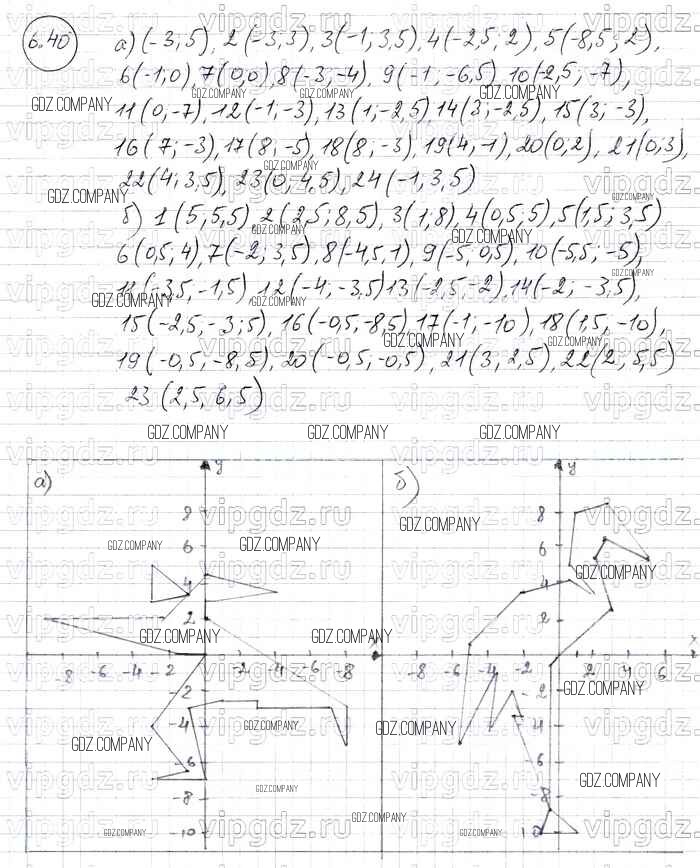 6.40
а) (-3; 5), 2(-3; 3), 3(-1; 3,5), 4(-2,5; 2), 5(-8,5; 2),
6(-1; 0), 7(0; 0), 8(-3; -4), 9(-1; -6,5), 10(-2,5; -7),
11(0; -7), 12(-1; -3), 13(1; -2,5), 14(3; -2,5), 15(3; -3),
16(7; -3), 17(8; -5), 18(8; -3), 19(4; -1), 20(0; 2), 21(0; 3),
22(4; 3,5), 23(0; 4,5), 24(-1; 3,5)
б) 1(5; 5,5), 2(2,5; 8,5), 3(1; 8), 4(0,5; 5), 5(1,5; 3,5)
6(0,5; 4), 7(-2; 3,5), 8(-4,5; 1), 9(-5; 0,5), 10(-5,5; -5),
11(-3,5; -1,5), 12(-4; -3,5) 13(-2,5; -2), 14(-2; -3,5),
15(-2,5; -3; 5), 16(-0,5; -8,5), 17(-1; -10), 18(1,5; -10),
19(-0,5; -8,5), 20(-0,5; -0,5), 21(3; 2,5), 22(2; 5,5)
23. (2,5; 6,5)
GDZ.COMPANY
vipgdz.ru
а) y
8
6
4
2
-8 -6 -4 -2 -2 -4 -6 -8
-2
-4
-6
-8
-10
б) y
8
6
4
2
-8 -6 -4 -2 2 4 6 x
-2
-4
-6
-8
10